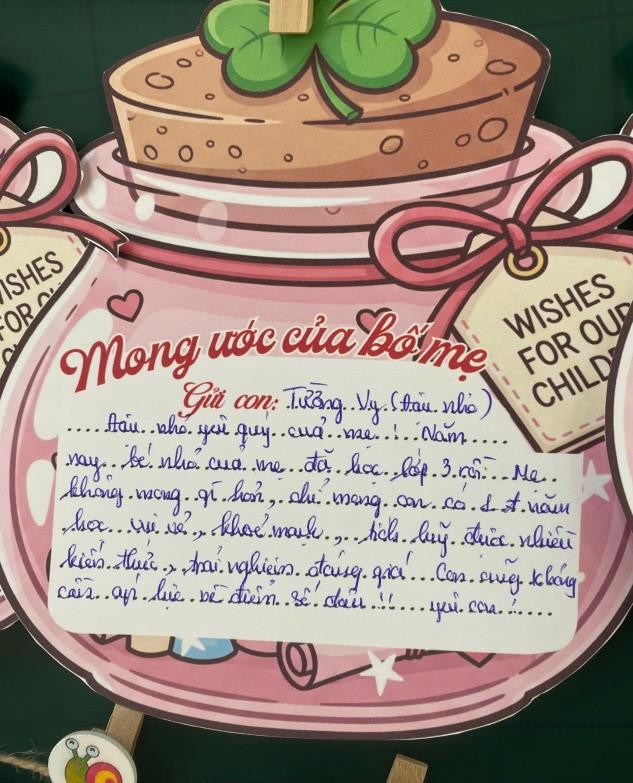 WISHES
FOR OU
WISHES
FOR OUR
CHILD
Mong ước của bố mẹ
Gửi con: Tường Vy (Đậu nhỏ)
Đậu nhỏ yêu quý của mẹ ! Năm
nay bé nhỏ của mẹ đã học lớp 3 rồi. Mẹ
không mong gì hơn, chỉ mong con có 1 năm
học vui vẻ, khoẻ mạnh, tích luỹ được nhiều
kiến thức, trải nghiệm đáng giá. Con cũng không
cần áp lực về điểm số đâu !! yêu con !